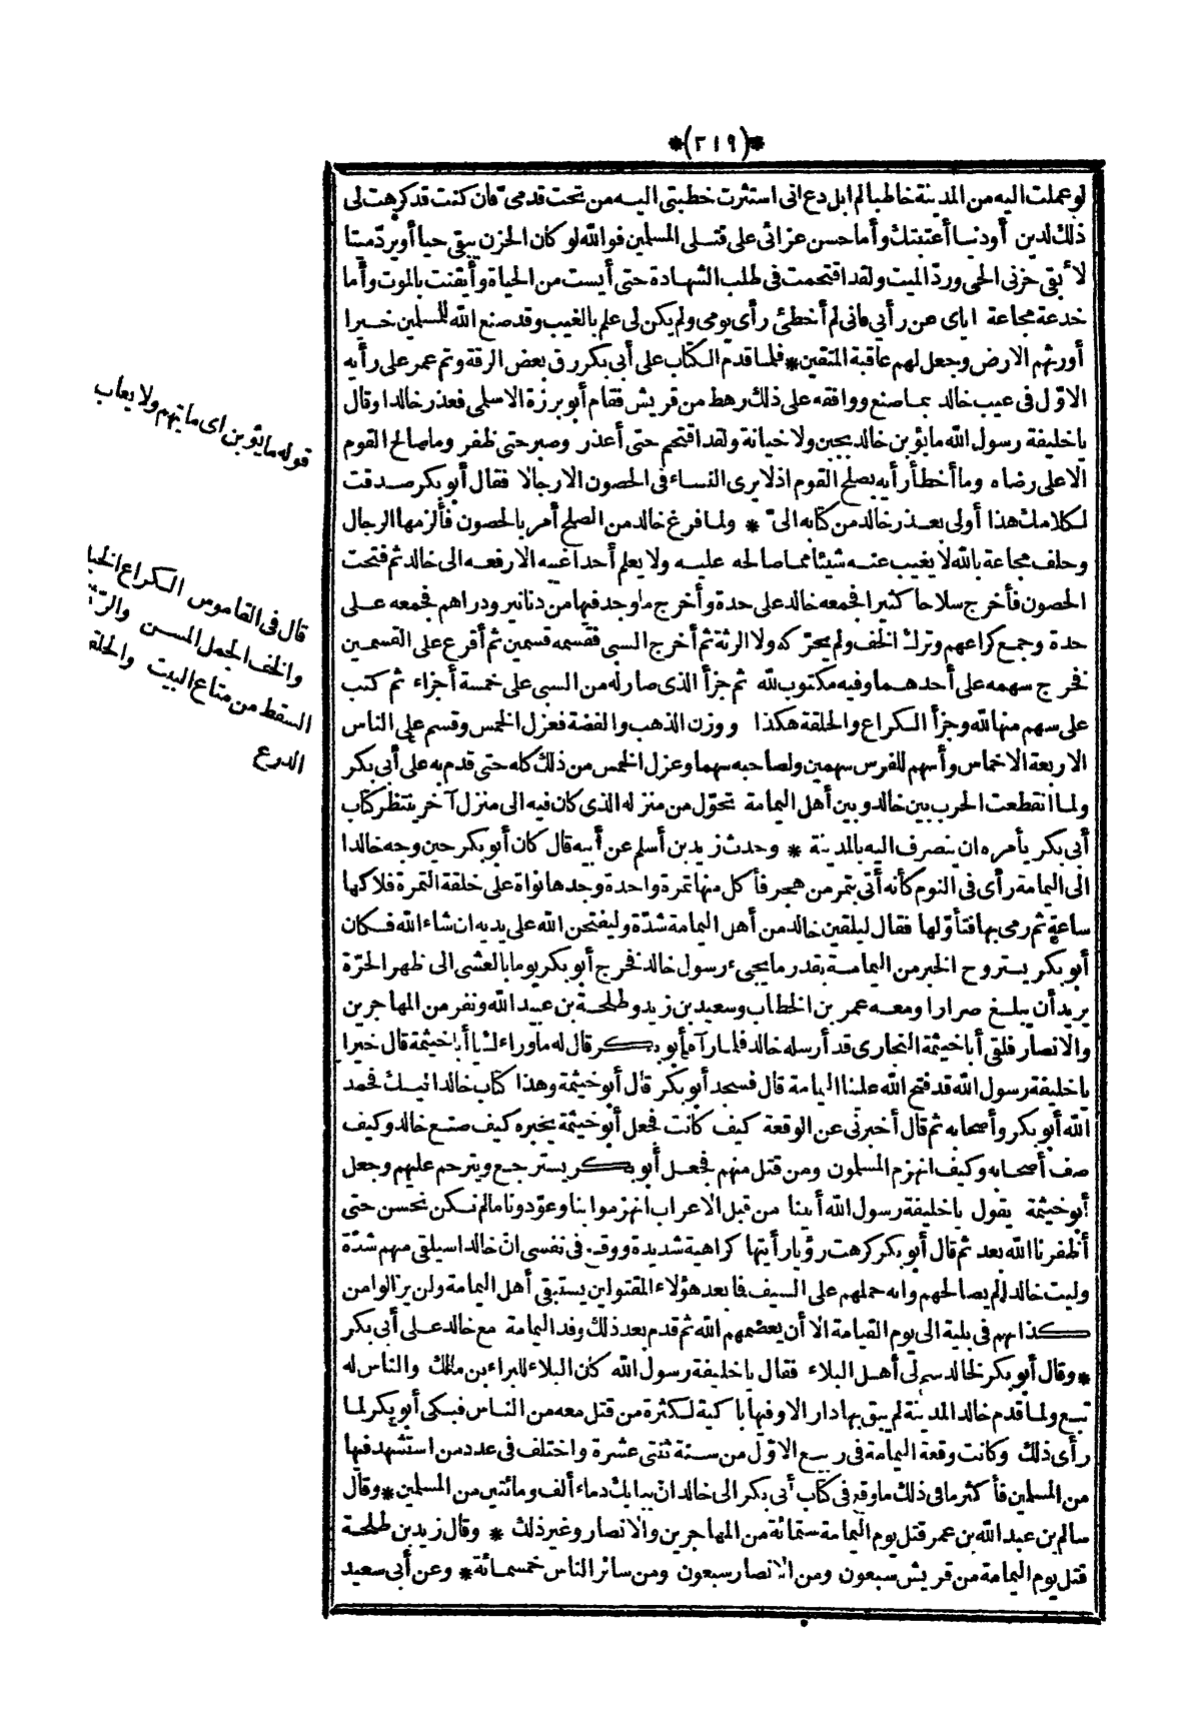 *(٢١٩)*
لو عملت اليه من المدينة خاطبا لم ابل دع انى استثرت خطبتى اليه من تحت قدمىّ فان كنت قد كرهت لى
ذلك لدين أو دنيا أعتبتك وأما حسن عزائى على قتلى المسلمين فوالله لو كان الحزن يبقى حيا أو يردّ ميتا
لأبقى حزنى الحى وردّ الميت ولقد اقتحمت فى طلب الشهادة حتى أيست من الحياة وأيقنت بالموت وأما
خدعة مجاعة اياى عن رأيى فانى لم أخطئ رأى يومى ولم يكن لى علم بالغيب وقد صنع الله للمسلمين خيرا
أورثهم الارض وجعل لهم عاقبة المتقين * فلما قدم الكتاب على أبى بكر رق بعض الرقة وتم عمر على رأيه
الاوّل فى عيب خالد بما صنع ووافقه على ذلك رهط من قريش فقام أبو برزة الاسلمى فعذر خالدا وقال
يا خليفة رسول الله ما يؤبن خالد بجبن ولا خيانة ولقد اقتحم حتى أعذر وصبر حتى ظفر وما صالح القوم
الا على رضاه وما أخطأ رأيه بصلح القوم اذ لا يرى النساء فى الحصون الا رجالا فقال أبو بكر صدقت
لكلامك هذا أولى بعذر خالد من كتابه الىّ * ولما فرغ خالد من الصلح أمر بالحصون فألزمها الرجال
وحلف مجاعة بالله لا يغيب عنه شيئا مما صالحه عليه ولا يعلم أحدا غيبه الا رفعه الى خالد ثم فتحت
الحصون فأخرج سلاحا كثيرا فجمعه خالد على حدة وأخرج ما وجد فيها من دنانير ودراهم فجمعه على
حدة وجمع كراعهم وترك الخف ولم يحرّكه ولا الرثة ثم أخرج السبى فقسمه قسمين ثم أقرع على القسمين
فخرج سهمه على أحدهما وفيه مكتوب لله ثم جزأ الذى صار له من السبى على خمسة أجزاء ثم كتب
على سهم منها لله وجزأ الكراع والحلقة هكذا ووزن الذهب والفضة فعزل الخمس وقسم على الناس
الاربعة الاخماس وأسهم للفرس سهمين ولصاحبه سهما وعزل الخمس من ذلك كله حتى قدم به على أبى بكر
ولما انقطعت الحرب بين خالد وبين أهل اليمامة تحوّل من منزله الذى كان فيه الى منزل آخر ينتظر كتاب
أبى بكر يأمره ان ينصرف اليه بالمدينة * وحدث زيد بن أسلم عن أبيه قال كان أبو بكر حين وجه خالدا
الى اليمامة رأى فى النوم كأنه أتى بتمر من هجر فأكل منها تمرة واحدة وجدها نواة على خلقة التمرة فلاكها
ساعة ثم رمى بها فتأوّلها فقال ليلقين خالد من أهل اليمامة شدّة وليفتحن الله على يديه ان شاء الله فكان
أبو بكر يستروح الخبر من اليمامة بقدر ما يجىء رسول خالد فخرج أبو بكر يوما بالعشى الى ظهر الحرّة
يريد أن يبلغ صرارا ومعه عمر بن الخطاب وسعيد بن زيد وطلحة بن عبيد الله ونفر من المهاجرين
والانصار فلقى أبا خيثمة النجارى قد أرسله خالد فلما رآه أبو بكر قال له ما وراءك يا أبا خيثمة قال خيرا
يا خليفة رسول الله قد فتح الله علينا اليمامة قال فسجد أبو بكر قال أبو خيثمة وهذا كتاب خالد اليك فحمد
الله أبو بكر وأصحابه ثم قال أخبرنى عن الوقعة كيف كانت فجعل أبو خيثمة يخبره كيف صنع خالد وكيف
صف أصحابه وكيف انهزم المسلمون ومن قتل منهم فجعل أبو بكر يسترجع ويترحم عليهم وجعل
أبو خيثمة يقول يا خليفة رسول الله أتينا من قبل الاعراب انهزموا بنا وعوّدونا ما لم نكن نحسن حتى
أظفرنا الله بعد ثم قال أبو بكر كرهت رؤيا رأيتها كراهية شديدة ووقع فى نفسى انّ خالدا سيلقى منهم شدّة
وليت خالدا لم يصالحهم وانه حملهم على السيف فما بعد هؤلاء المقتولين يستبقى أهل اليمامة ولن يزالوا من
كذابهم فى بلية الى يوم القيامة الا أن يعصمهم الله ثم قدم بعد ذلك وفد اليمامة مع خالد على أبى بكر
* وقال أبو بكر لخالد سم لى أهل البلاء فقال يا خليفة رسول الله كان البلاء للبراء بن مالك والناس له
تبع ولما قدم خالد المدينة لم يبق بها دار الا وفيها باكية لكثرة من قتل معه من الناس فبكى أبو بكر لما
رأى ذلك وكانت وقعة اليمامة فى ربيع الاوّل من سنة ثنتى عشرة واختلف فى عدد من استشهد فيها
من المسلمين فأكثر ما فى ذلك ما وقع فى كتاب أبى بكر الى خالد انّ ببابك دماء ألف ومائتين من المسلمين * وقال
سالم بن عبد الله بن عمر قتل يوم اليمامة ستمائة من المهاجرين والانصار وغير ذلك * وقال زيد بن طلحة
قتل يوم اليمامة من قريش سبعون ومن الانصار سبعون ومن سائر الناس خمسمائة * وعن أبى سعيد
قوله ما يؤبن اى ما يتهم ولا يعاب
قال فى القاموس الكراع
والخف الجمل المسن
السقط من متاع البيت
الدرع